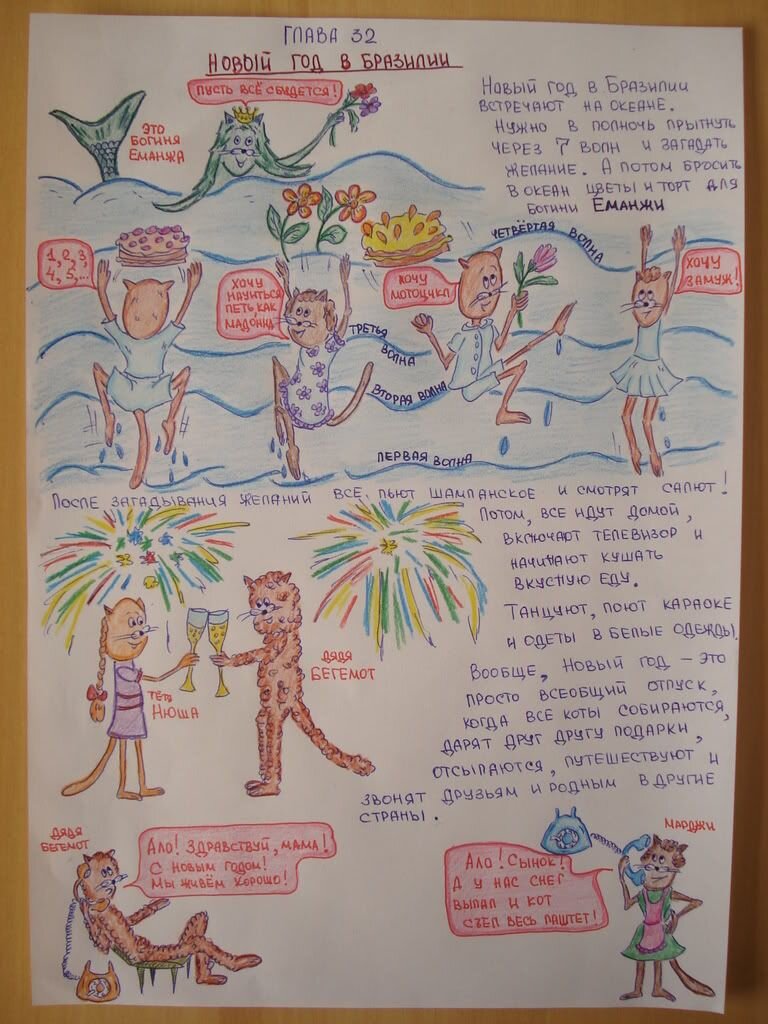 ГЛАВА 32
НОВЫЙ ГОД В БРАЗИЛИИ
ПУСТЬ ВСЁ СБУДЕТСЯ!
ЭТО
БОГИНЯ
ЕМАНЖА
НОВЫЙ ГОД В БРАЗИЛИИ
ВСТРЕЧАЮТ НА ОКЕАНЕ.
НУЖНО В ПОЛНОЧЬ ПРЫГНУТЬ
ЧЕРЕЗ 7 ВОЛН И ЗАГАДАТЬ
ЖЕЛАНИЕ. А ПОТОМ БРОСИТЬ
В ОКЕАН ЦВЕТЫ И ТОРТ ДЛЯ
БОГИНИ ЕМАНЖИ
1, 2, 3,
4, 5,...
ХОЧУ
НАУЧИТЬСЯ
ПЕТЬ КАК
МАДОННА
ХОЧУ
МОТОЦИКЛ
ХОЧУ
ЗАМУЖ!
ЧЕТВЁРТАЯ ВОЛНА
ТРЕТЬЯ
ВОЛНА
ВТОРАЯ ВОЛНА
ПЕРВАЯ ВОЛНА
ПОСЛЕ ЗАГАДЫВАНИЯ ЖЕЛАНИЙ ВСЕ ПЬЮТ ШАМПАНСКОЕ И СМОТРЯТ САЛЮТ!
ПОТОМ, ВСЕ ИДУТ ДОМОЙ,
ВКЛЮЧАЮТ ТЕЛЕВИЗОР И
НАЧИНАЮТ КУШАТЬ
ВКУСНУЮ ЕДУ.
ТАНЦУЮТ, ПОЮТ КАРАОКЕ
И ОДЕТЫ В БЕЛЫЕ ОДЕЖДЫ.
ТЁТЯ
НЮША
ДЯДЯ
БЕГЕМОТ
ВООБЩЕ, НОВЫЙ ГОД – ЭТО
ПРОСТО ВСЕОБЩИЙ ОТПУСК,
КОГДА ВСЕ КОТЫ СОБИРАЮТСЯ,
ДАРЯТ ДРУГ ДРУГУ ПОДАРКИ,
ОТСЫПАЮТСЯ, ПУТЕШЕСТВУЮТ И
ЗВОНЯТ ДРУЗЬЯМ И РОДНЫМ В ДРУГИЕ
СТРАНЫ.
ДЯДЯ
БЕГЕМОТ
АЛО! ЗДРАВСТВУЙ, МАМА!
С НОВЫМ ГОДОМ!
МЫ ЖИВЁМ ХОРОШО!
МАРДЖИ
АЛО! СЫНОК!
А У НАС СНЕГ
ВЫПАЛ И КОТ
СЪЕЛ ВЕСЬ ПАШТЕТ!